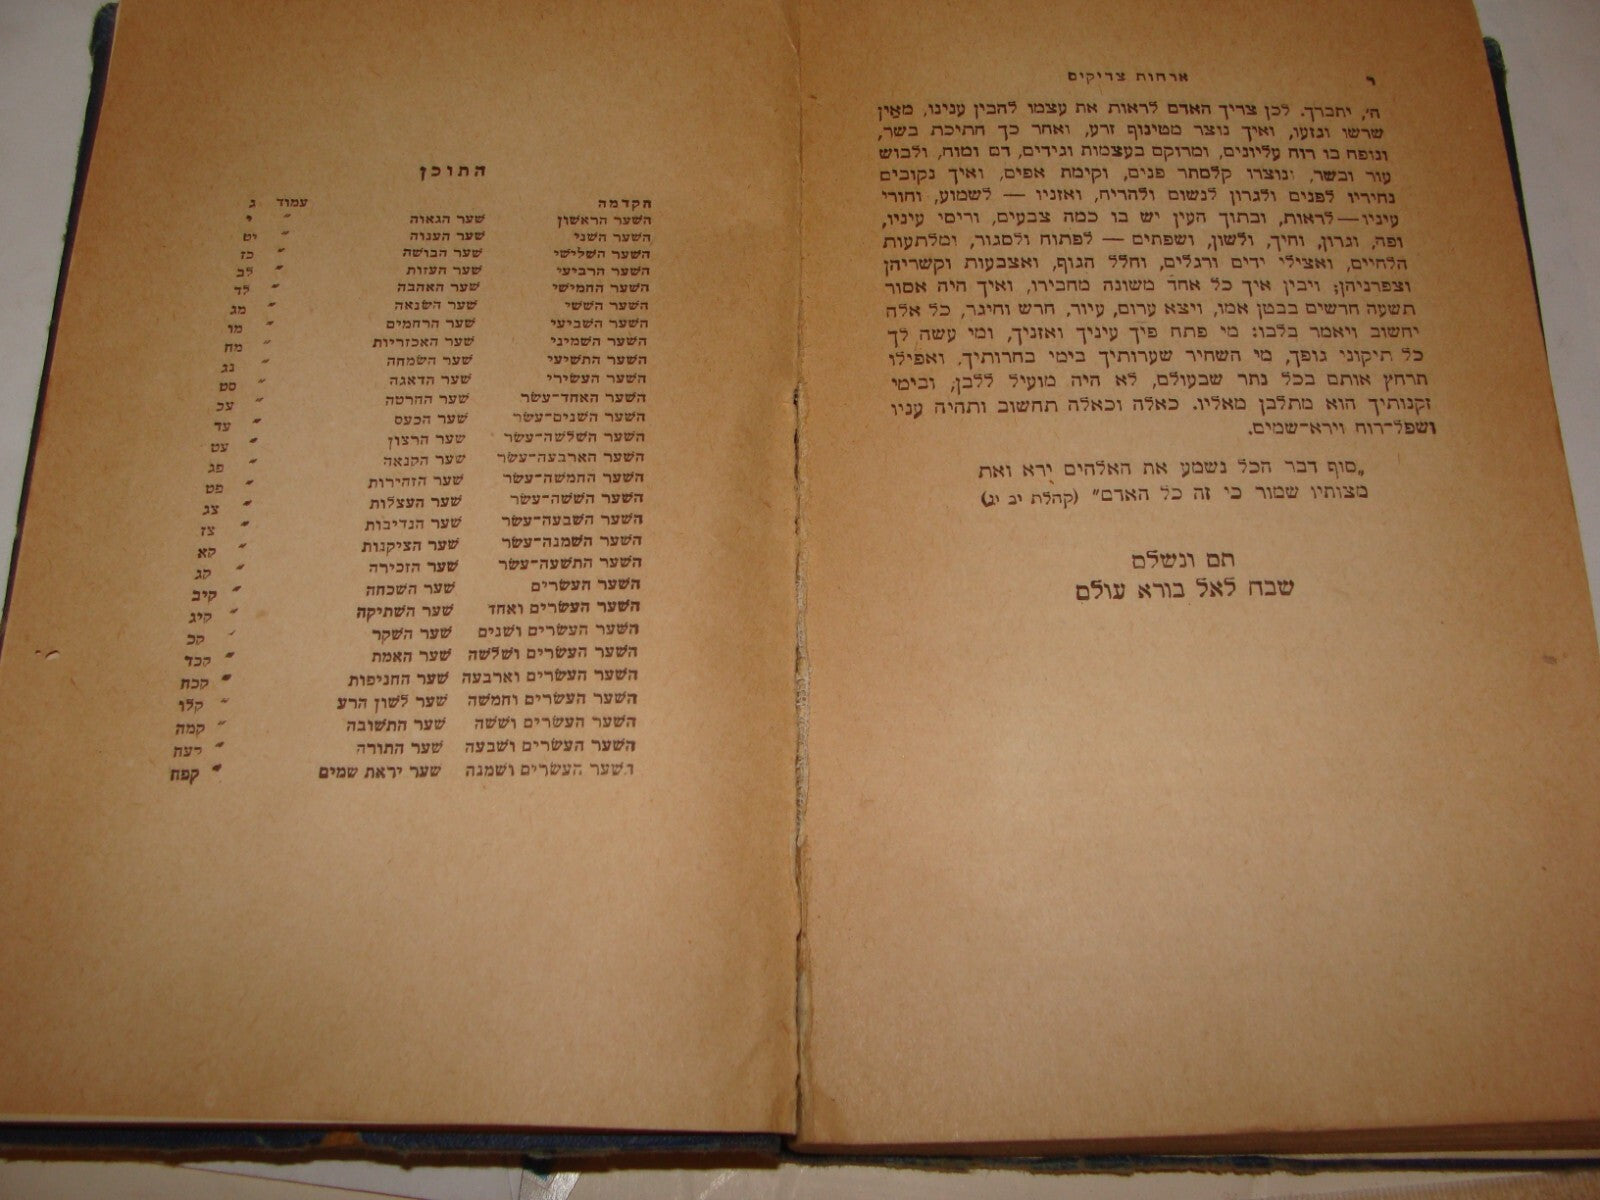 ר
ארחות צדיקים
ה׳, יתברך. לכן צריך האדם לראות את עצמו להבין ענינו, מאַין
שרשו וגזעו, ואיך נוצר מטינוף זרע, ואחר כך חתיכת בשר,
ונופח בו רוח עליונים, ומרוקם בעצמות וגידים, דם ומוח, ולבוש
עור ובשר, ונוצרו קלסתר פנים, וקימת אפים, ואיך נקובים
נחיריו לפנים ולגרון לנשום ולהריח, ואזניו — לשמוע, וחורי
עיניו — לראות, ובתוך העין יש בו כמה צבעים, וריסי עיניו,
ופה, וגרון, וחיך, ולשון, ושפתים — לפתוח ולסגור, ומלתעות
הלחיים, ואצילי ידים ורגלים, וחלל הגוף, ואצבעות וקשריהן
וצפרניהן; ויבין איך כל אחד משונה מחבירו, ואיך היה אסור
תשעה חדשים בבטן אמו, ויצא ערום, עיור, חרש וחיגר, כל אלה
יחשוב ויאמר בלבו: מי פתח פיך עיניך ואזניך, ומי עשה לך
כל תיקוני גופך, מי השחיר שערותיך בימי בחרותיך. ואפילו
תרחץ אותם בכל נתר שבעולם, לא היה מועיל ללבן; ובימי
זקנותיך הוא מתלבן מאליו. כאלה וכאלה תחשוב ותהיה עניו
ושפל־רוח וירא־שמים.
„סוף דבר הכל נשמע את האלהים ירא ואת
מצותיו שמור כי זה כל האדם" (קהלת יב יג)
תם ונשלם
שבח לאל בורא עולם
התוכן
הקדמה עמוד ג
השער הראשון שער הגאוה ״ י
השער השני שער הענוה ״ יט
השער השלישי שער הבושה ״ כז
השער הרביעי שער העזות ״ לב
השער החמישי שער האהבה ״ לד
השער הששי שער השנאה ״ מג
השער השביעי שער הרחמים ״ מו
השער השמיני שער האכזריות ״ מח
השער התשיעי שער השמחה ״ נג
השער העשירי שער הדאגה ״ סט
השער האחד־עשר שער החרטה ״ עב
השער השנים־עשר שער הכעס ״ עד
השער השלשה־עשר שער הרצון ״ עט
השער הארבעה־עשר שער הקנאה ״ פג
השער החמשה־עשר שער הזהירות ״ פט
השער הששה־עשר שער העצלות ״ צג
השער השבעה־עשר שער הנדיבות ״ צז
השער השמנה־עשר שער הציקנות ״ קא
השער התשעה־עשר שער הזכירה ״ קג
השער העשרים שער השכחה ״ קיב
השער העשרים ואחד שער השתיקה ״ קיג
השער העשרים ושנים שער השקר ״ קכ
השער העשרים ושלשה שער האמת ״ קכד
השער העשרים וארבעה שער החניפות ״ קכח
השער העשרים וחמשה שער לשון הרע ״ קלו
השער העשרים וששה שער התשובה ״ קמה
השער העשרים ושבעה שער התורה ״ קעח
השער העשרים ושמנה שער יראת שמים ״ קפח